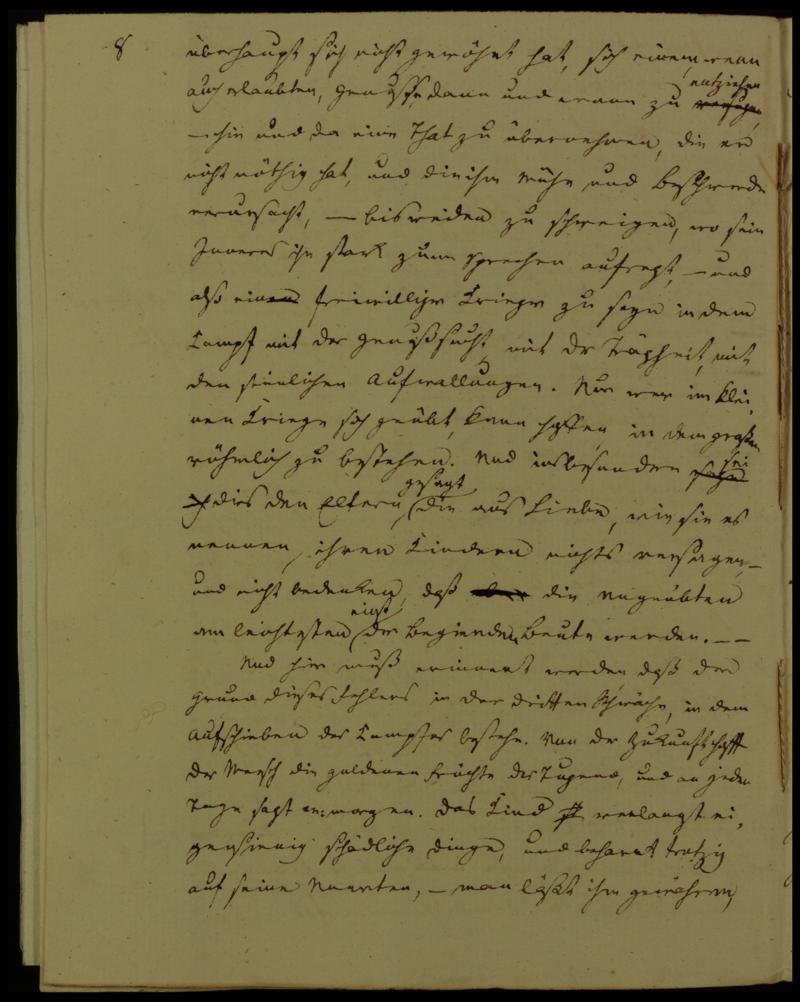 8
überhaupt sich nicht gewöhnt hat, sich einem, wenn
auch erlaubten, Genusse, dann und wann zu entziehen,
— hie und da eine That zu übernehmen, die er
nicht nöthig hat, und die ihm Mühe und Beschwerde
verursacht, — bisweilen zu schweigen, wo sein
Inneres ihn stark zum sprechen aufregt, — und
also ein freiwilliger Krieger zu seyn in dem
Kampf mit der Genußsucht, mit der Trägheit, mit
den sinnlichen Aufwallungen. Nur wer im klei,
nen Kriege sich geübt, kann hoffen, in dem großen
rühmlich zu bestehen. Und insbesondere sei
dies den Eltern gesagt, die aus Liebe, wie sie es
nennen, ihren Kindern nichts versagen, —
und nicht bedenken, daß die ungeübten
am leichtesten einst der Begierden Beute werden. — —
Und hier muß erinnert werden daß der
Grund dieses Fehlers in der dritten Schwäche, in dem
Aufschieben des Kampfes bestehe. Von der Zukunft hofft
der Mensch die goldenen Früchte der Tugend, und an jedem
Tage sagt er: morgen. Das Kind verlangt ei,
gensinnig schädliche Dinge, und beharrt trotzig
auf seine Unarten, — man läßt ihm gewähren,